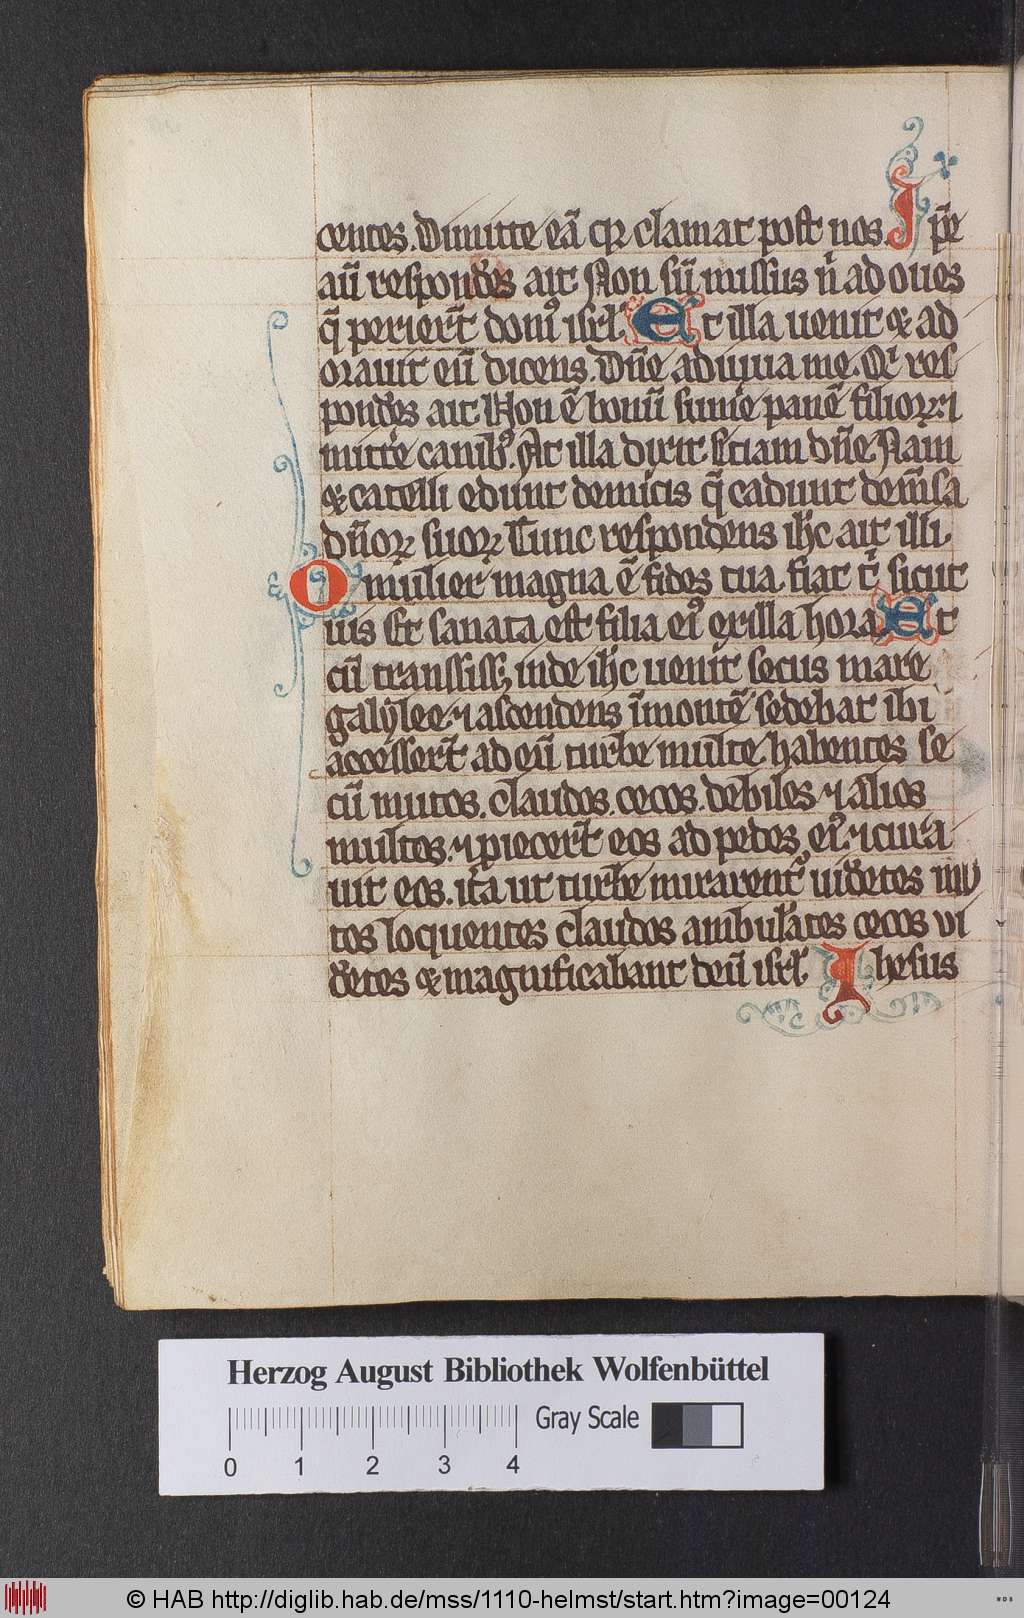 centes. Dimitte eā qꝛ clamat post nos. I p̄e
aū respond̄es ait Non sū missus n̄ ad oues
q̄ perierīt domꝰ isrl̄. Et illa uenit ⁊ ad
orauit eū dicens. Dn̄e adiuua me. Qͥ res
pond̄es ait. Non ē bonū sumͤe panē filioꝝ ⁊
mittͤe canibꝰ. At illa dixit. Etiam dn̄e Nam
⁊ catelli edunt de micis q̄ cadunt de mēsa
dn̄oꝝ suoꝝ Tunc respondens ih̄c ait illi.
O mulier magna ē fides tua. fiat tͥ sicut
uis Et sanata est filia eiꝰ ex illa hora At
cū transsissꝫ inde ih̄c uenit secus mare
galylee. ⁊ ascendens ī montē sedebat ibi
accesserт̄ ad eū turbe multe. habentes se
cū mutos. claudos. cecos. debiles ⁊ alios
multos. ⁊ ꝓiecert̄ eos ad pedes eiꝰ. ⁊ cura
uit eos. ita ut turbe mirarentᷣ uid̄etes mu
tos loquentes claudos ambulātes cecos vi
d̄etes ⁊ magnificabant deū isrl̄ Ihesus
Herzog August Bibliothek Wolfenbüttel
Gray Scale
0 1 2 3 4
© HAB http://diglib.hab.de/mss/1110-helmst/start.htm?image=00124